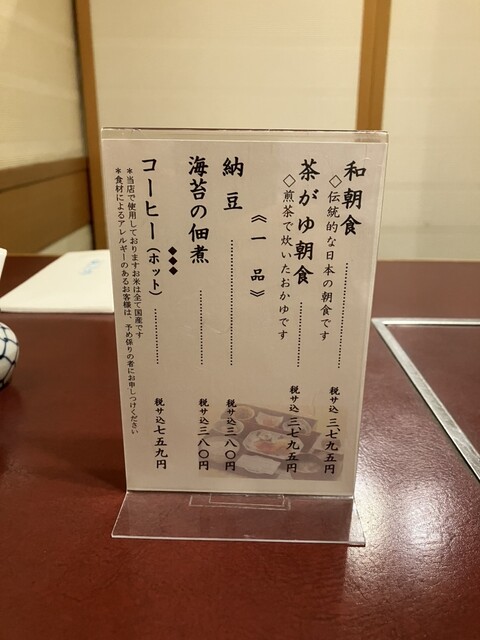 和朝食……………税サ込 三、七九五円
◇伝統的な日本の朝食です
茶がゆ朝食……………税サ込 三、七九五円
◇煎茶で炊いたおかゆです
《一品》
納豆……………税サ込三八〇円
海苔の佃煮……………税サ込三八〇円
◆◆◆
コーヒー(ホット)……………税サ込七五九円
*当店で使用しておりますお米は全て国産です
*食材によるアレルギーのあるお客様は、予め係りの者にお申しつけください